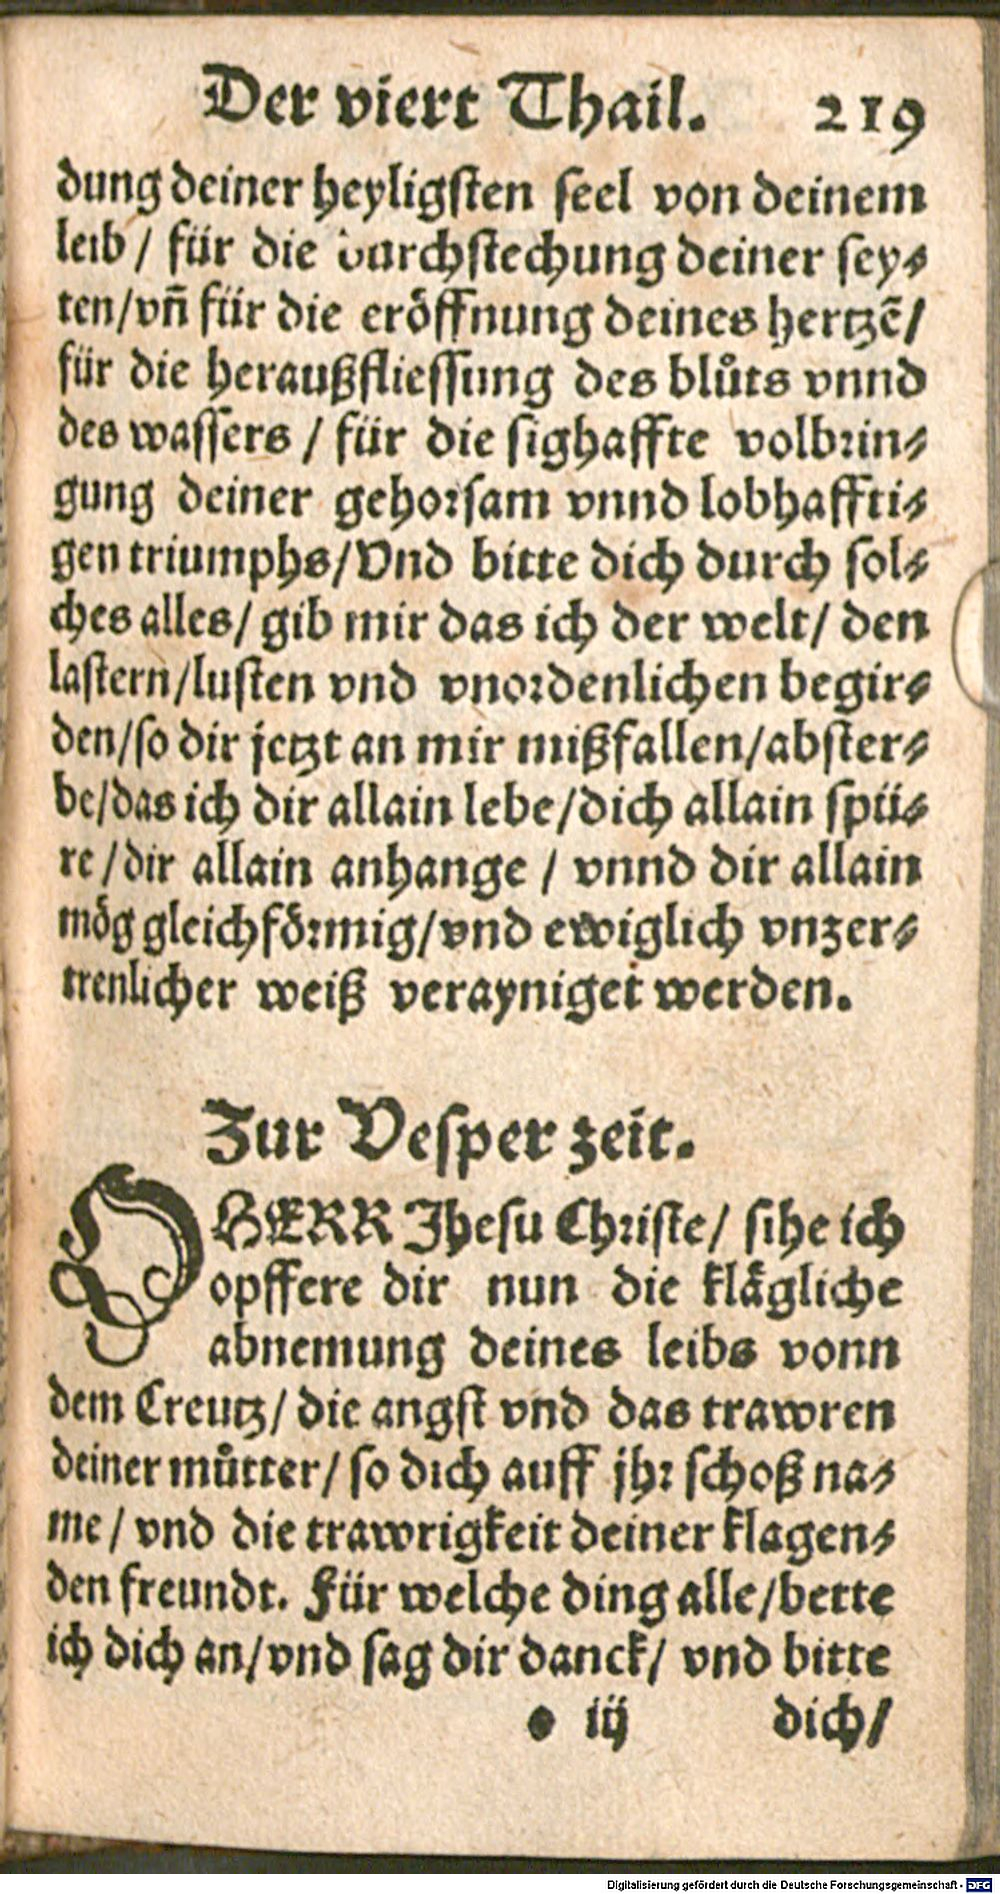 Der viert Thail. 219
dung deiner heyligsten seel von deinem
leib / für die durchstechung deiner sey⸗
ten/vn̄ für die eröffnung deines hertzē/
für die heraußfliessung des blůts vnnd
des wassers / für die sighaffte volbrin⸗
gung deiner gehorsam vnnd lobhaffti⸗
gen triumphs/Vnd bitte dich durch sol⸗
ches alles/ gib mir das ich der welt/ den
lastern/lusten vnd vnordenlichen begir⸗
den/so dir jetzt an mir mißfallen/abster⸗
be/das ich dir allain lebe/dich allain spü⸗
re /dir allain anhange / vnnd dir allain
mög gleichförmig/vnd ewiglich vnzer⸗
trenlicher weiß verayniget werden.
Zur Vesper zeit.
O HERR Jhesu Christe/ sihe ich
opffere dir nun die klägliche
abnemung deines leibs vonn
dem Creutz/ die angst vnd das trawren
deiner můtter/ so dich auff jhr schoß na⸗
me / vnd die trawrigkeit deiner klagen⸗
den freundt. Für welche ding alle/bette
ich dich an/vnd sag dir danck/ vnd bitte
e iij dich/
Digitalisierung gefördert durch die Deutsche Forschungsgemeinschaft - DFG